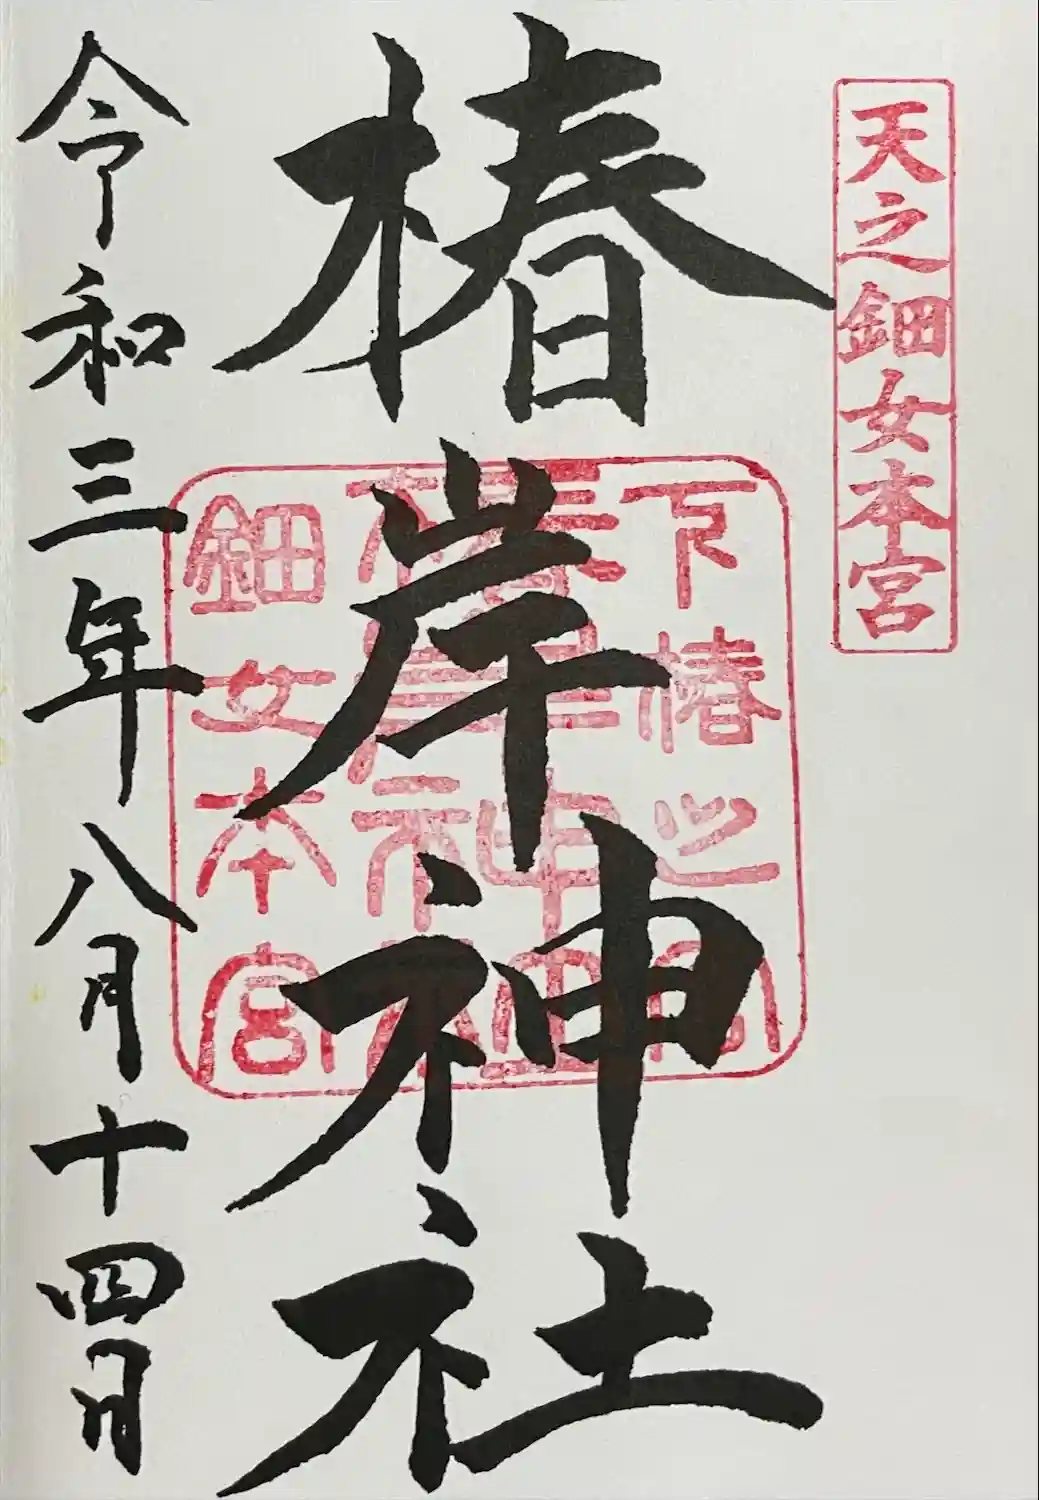 天之鈿女本宮
椿岸神社
下椿之
鈿女本宮
令和三年八月十四日